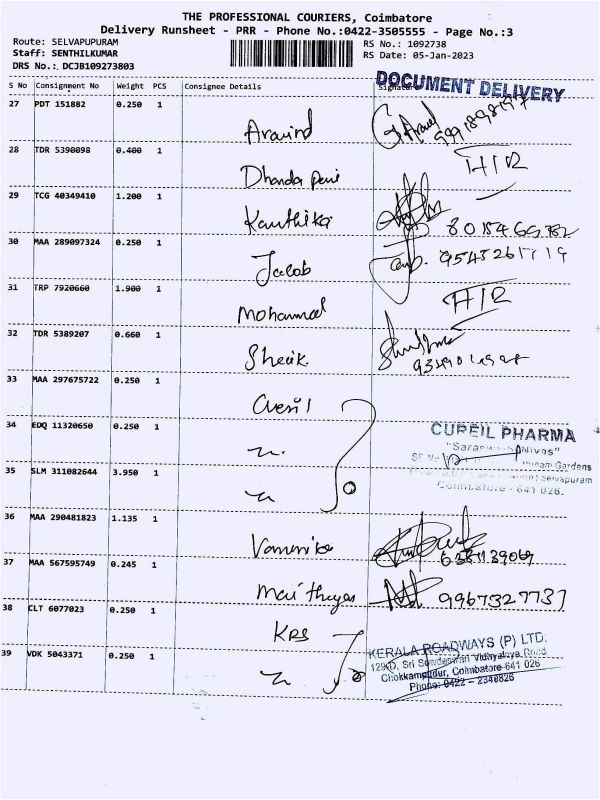 THE PROFESSIONAL COURIERS, Coimbatore
Delivery Runsheet - PRR - Phone No.:0422-3505555 - Page No.:3
Route: SELVAPUPURAM
RS No.: 1092738
Staff: SENTHILKUMAR
RS Date: 05-Jan-2023
DRS No.: DCJB109273803
DOCUMENT DELIVERY
S No Consignment No Weight PCS Consignee Details Signature
27 PDT 151882 0.250 1 Aravind
28 TDR 5390098 0.400 1 Dhanda H/R
29 TCG 40349410 1.200 1 Kauthika
30 MAA 289097324 0.250 1 Jacob
31 TRP 7920660 1.900 1 Mohammed H/R
32 TDR 5389207 0.660 1 Sheik
33 MAA 297675722 0.250 1
34 EDQ 11320650 0.250 1
CUPEIL PHARMA
"Saraswathi Nivas"
Gardens
Selvapuram
Coimbatore - 641 026.
35 SLM 311082644 3.950 1
36 MAA 290481823 1.135 1
37 MAA 567595749 0.245 1 9967327737
38 CLT 6077023 0.250 1 KRS
39 VDK 5043371 0.250 1
KERALA ROADWAYS (P) LTD.
129/D, Sri Sowdeswari Vidhyalaya Road
Chokkampudur, Coimbatore-641 026
Phone: 0422 - 2346826